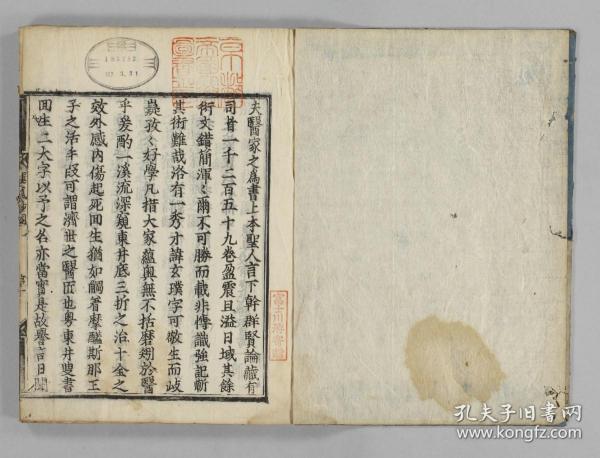 夫醫家之爲書上本聖人言下幹群賢論藏有
司者一千二百五十九卷盈震旦溢日域其餘
術文錯簡渾〻爾不可勝而載非博識強記斬
其術難哉洛有一秀才諱玄璞字可敬生而岐
嶷孜〻好學凡指大家蘊奧無不括磨翔於醫
乎爰酌一溪流深窺東井底三折之治十全之
效外感内傷起死回生猶如觸着摩醯斯那王
子之活手段可謂濟世之醫匠也粤東井叟書
回生二大字以予之名亦當實是故譽言日聞
孔夫子旧书网
www.kongfz.com